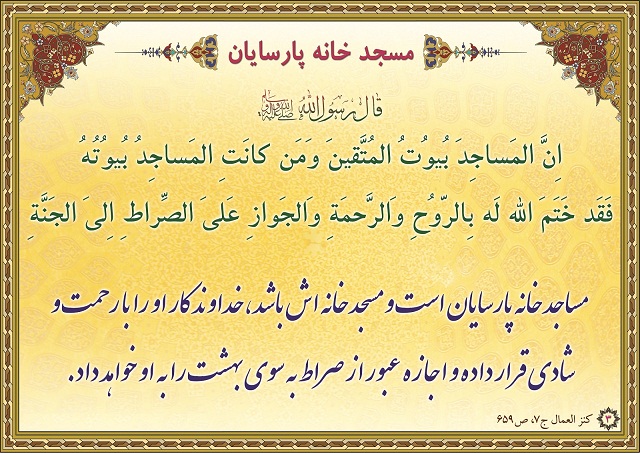 مسجد خانه پارسایان
قال رسول الله صلی الله علیه وآله
اِنَّ المَساجِدَ بُیوُتُ المُتَّقینَ وَمَن کانَتِ المَساجِدُ بُیوُتُهُ
فَقَد خَتَمَ الله لَه بِالرّوُحِ وَالرَّحمَةِ وَالجَوازِ عَلیَ الصِّراطِ اِلیَ الجَنَّةِ
مساجد خانه پارسایان است و مسجد خانه اش باشد، خداوند کار او را با رحمت و
شادی قرار داده و اجازه عبور از صراط به سوی بهشت را به او خواهد داد.
۳ کنز العمال ج۷، ص۶۵۹